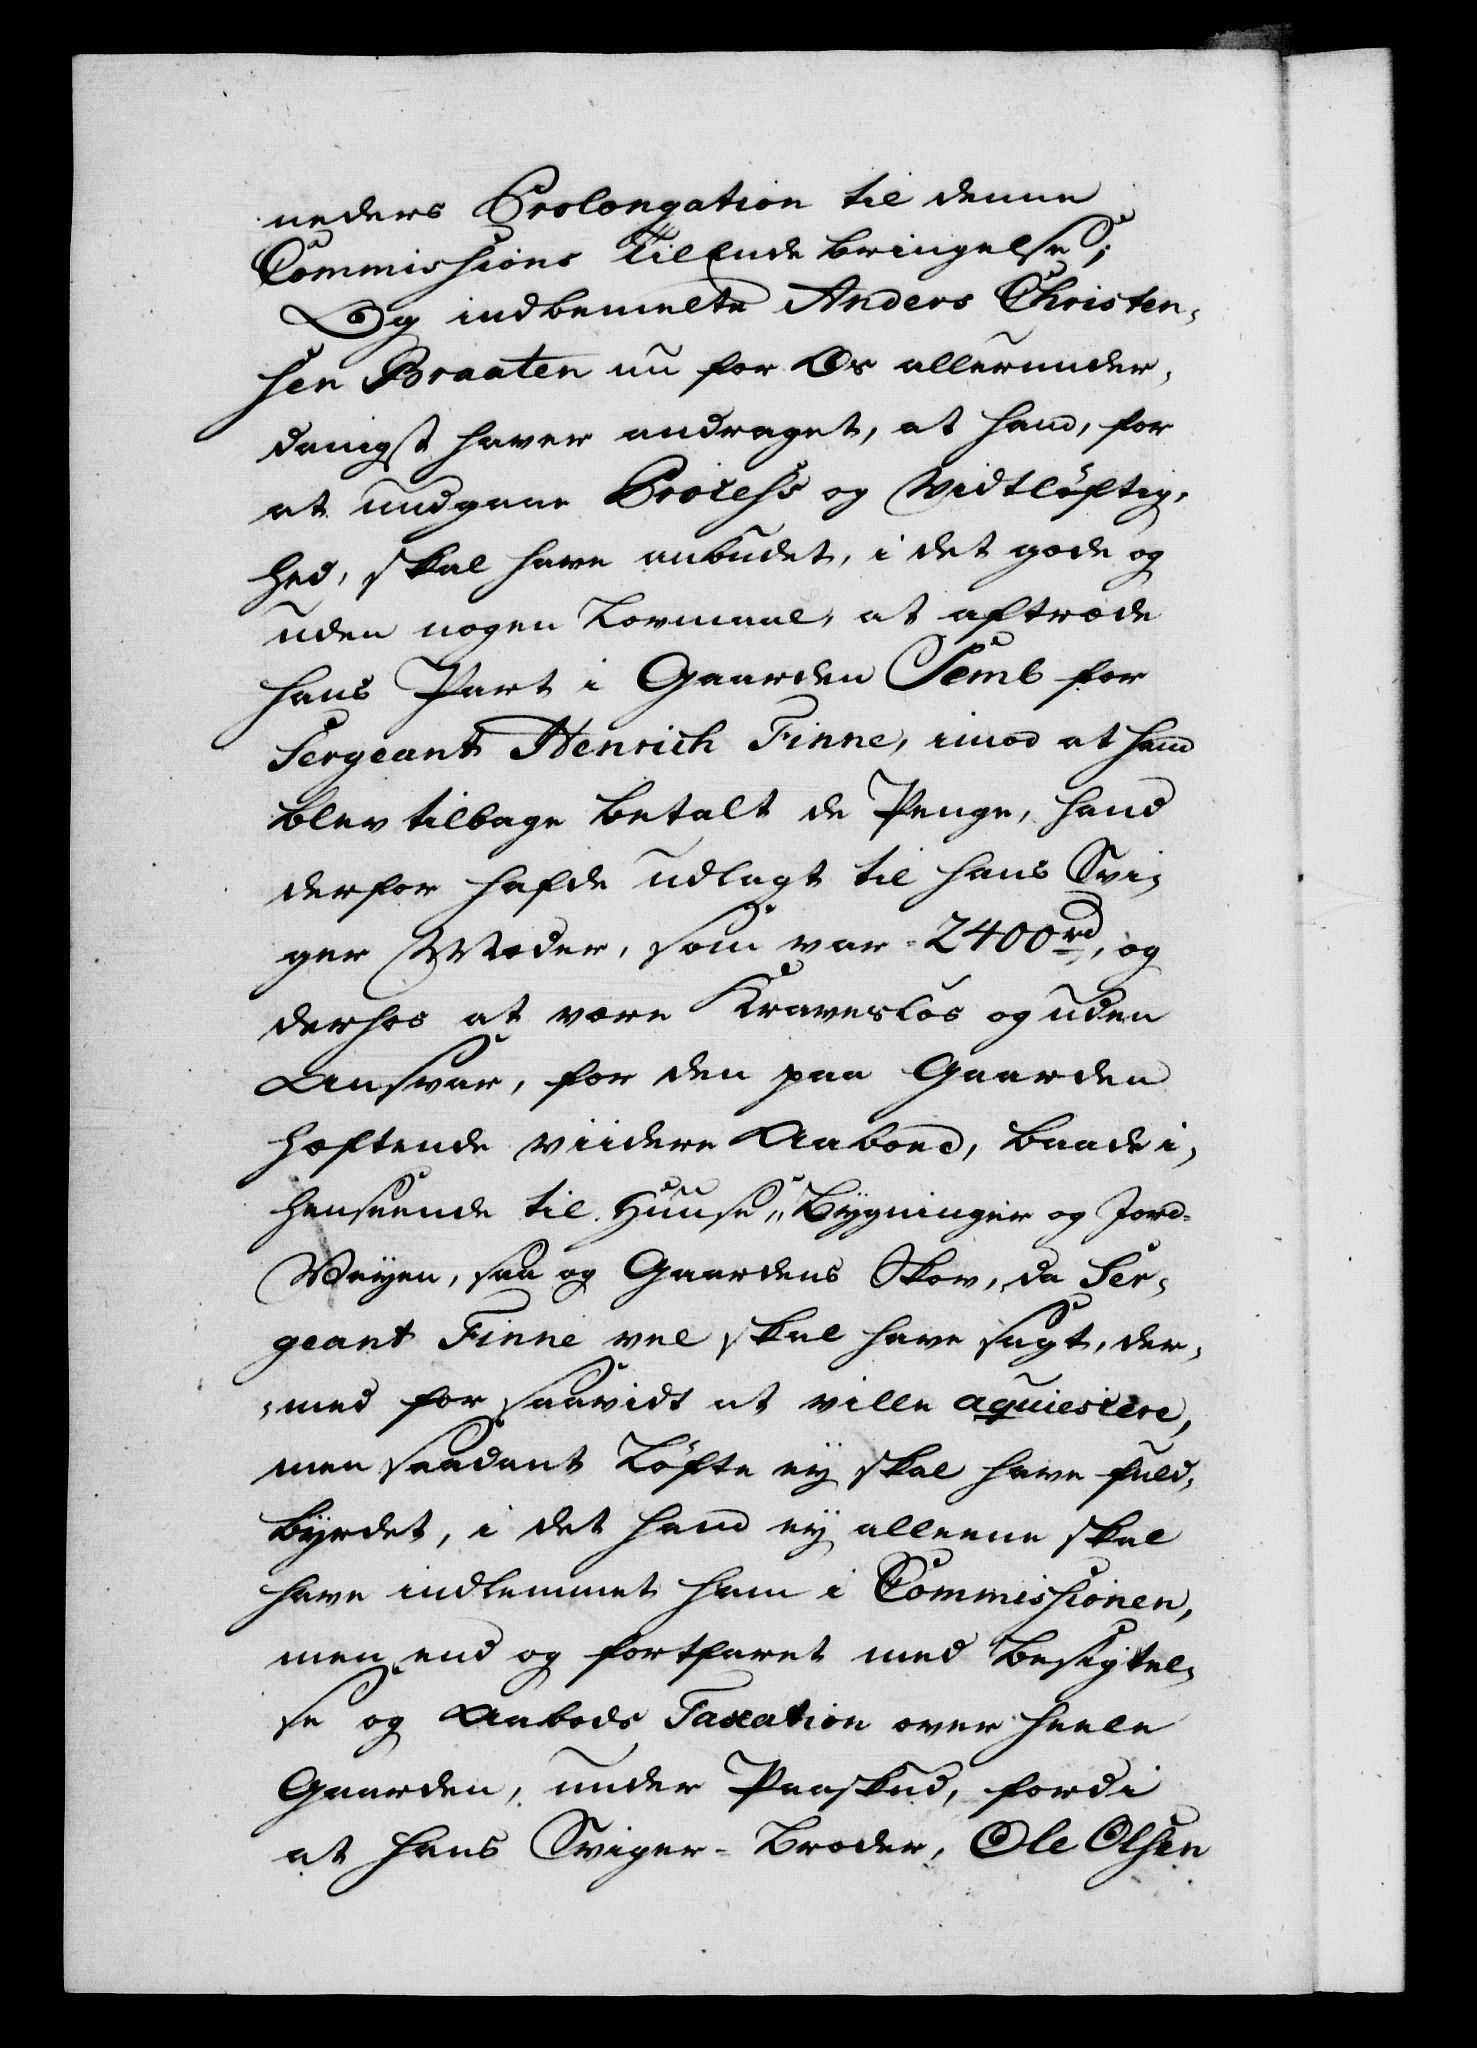 neders Prolongation til denne
Commissions TilEnde bringelse;
Og indbemelte Anders Christen,
sen Braaten nu for Os allerunder,
danigst haver andraget, at hand, for
at undgaae Process og Vidtløftig,
hed, skal have anbudet, i det gode og
uden nogen Lovmaal, at aftræde
hans Part i Gaarden Semb for
Sergeant Henrich Finne, imod at hand
blev tilbage betalt de Penge, hand
derfor hafde udlagt til hans Svi,
ger Moder, som var 2400 rd, og
derhos at være Kravesløs og uden
Ansvar, for den paa Gaarden
hæftende viidere Aaboed, baade i,
henseende til Huuse, Bÿgninger og Jord-
Veÿen, saa og Gaardens Skov, da Ser,
geant Finne vel skal have sagt, der,
,med for saavidt at ville aquiescere,
men saadant Løfte eÿ skal have fuld,
bÿrdet, i det hand eÿ alleene skal
have indlemmet ham i Commissionen,
men end og fortfaret med Besigtel,
se og Aabods Taxation over heele
Gaarden, under Paaskud, fordi
at hans Sviger-Broder, Ole Olsen